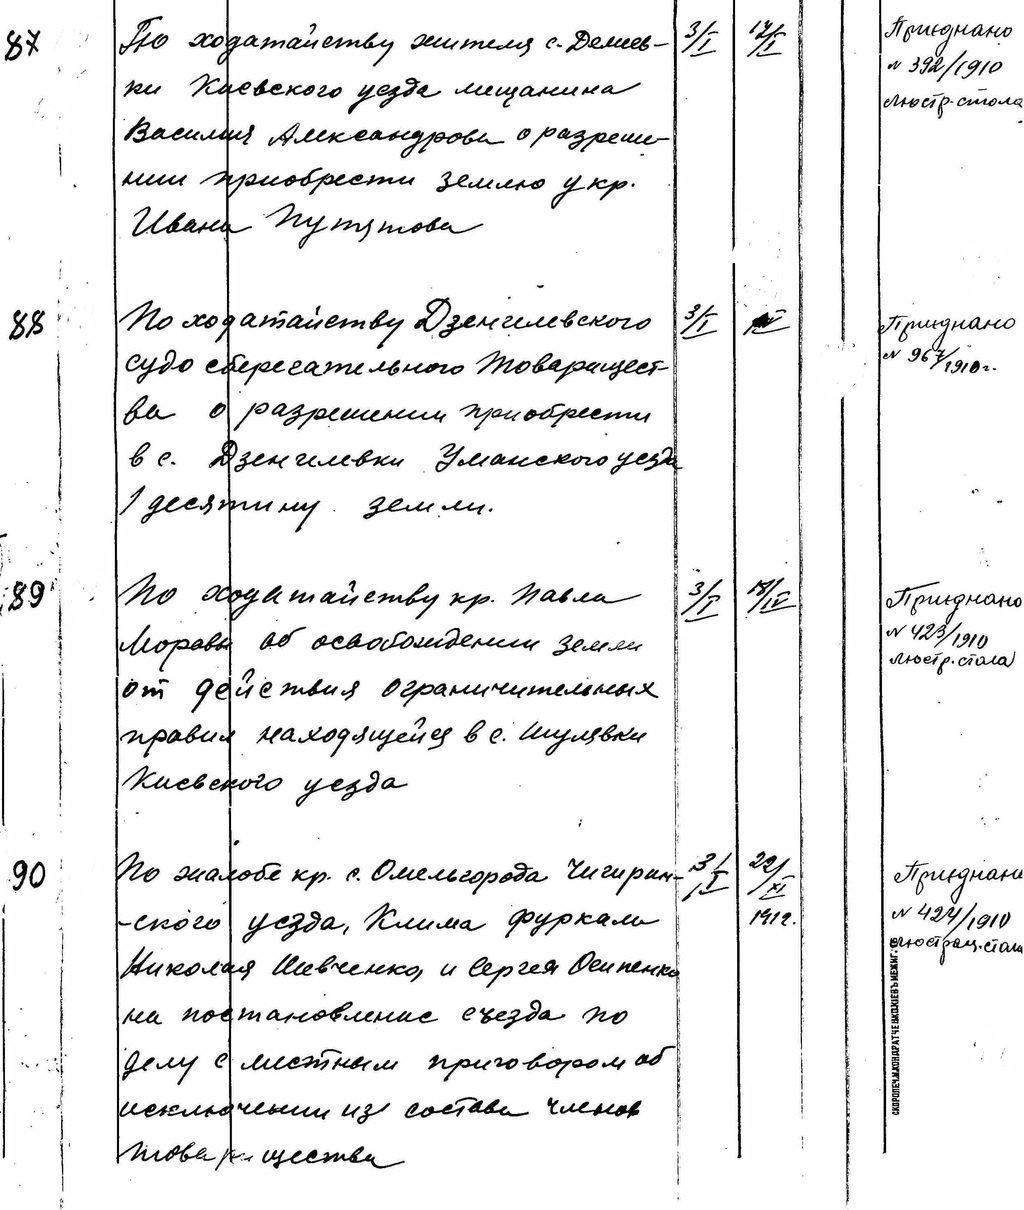 87
По ходатайству жителя с. Демиев-
ки Киевского уезда мещанина
Василия Александрова о разреше-
нии приобрести землю у кр.
Ивана Путятова
3/I
17/I
Приднано
N 392/1910
люстр. стола
88
По ходатайству Дзенгелевского
судо сберегательного товарищест-
ва о разрешении приобрести
в с. Дзенгелевки Уманского уезда
1 десятину земли.
3/I
Приднано
N 967/1910 г.
89
По ходатайству кр. Павла
Моравы об освобождении земли
от действия ограничительных
правил находящейся в с. Шулявки
Киевского уезда
3/I
Приднано
N 423/1910
люстр. стола
90
По жалобе кр. с. Омельгорода Чигирин-
-ского уезда, Клима Фуркала
Николая Шевченко, и Сергея Осипенко
на постановление съезда по
делу с местным приговором об
исключении из состава членов
товарищества
3/I
22/XI
1912.
Приднано
N 424/1910
люстрац. стола